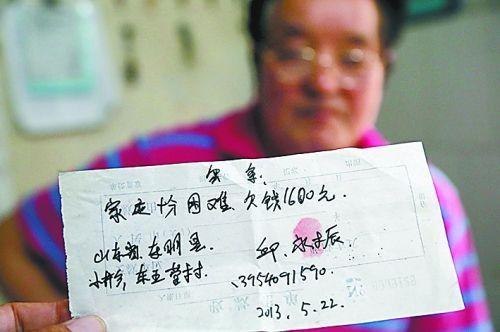 欠条.
家庭十分困难,欠钱1600元.
山东省,东明县. 邱
小井乡,东王营村. 13954091590.
2013.5.22.